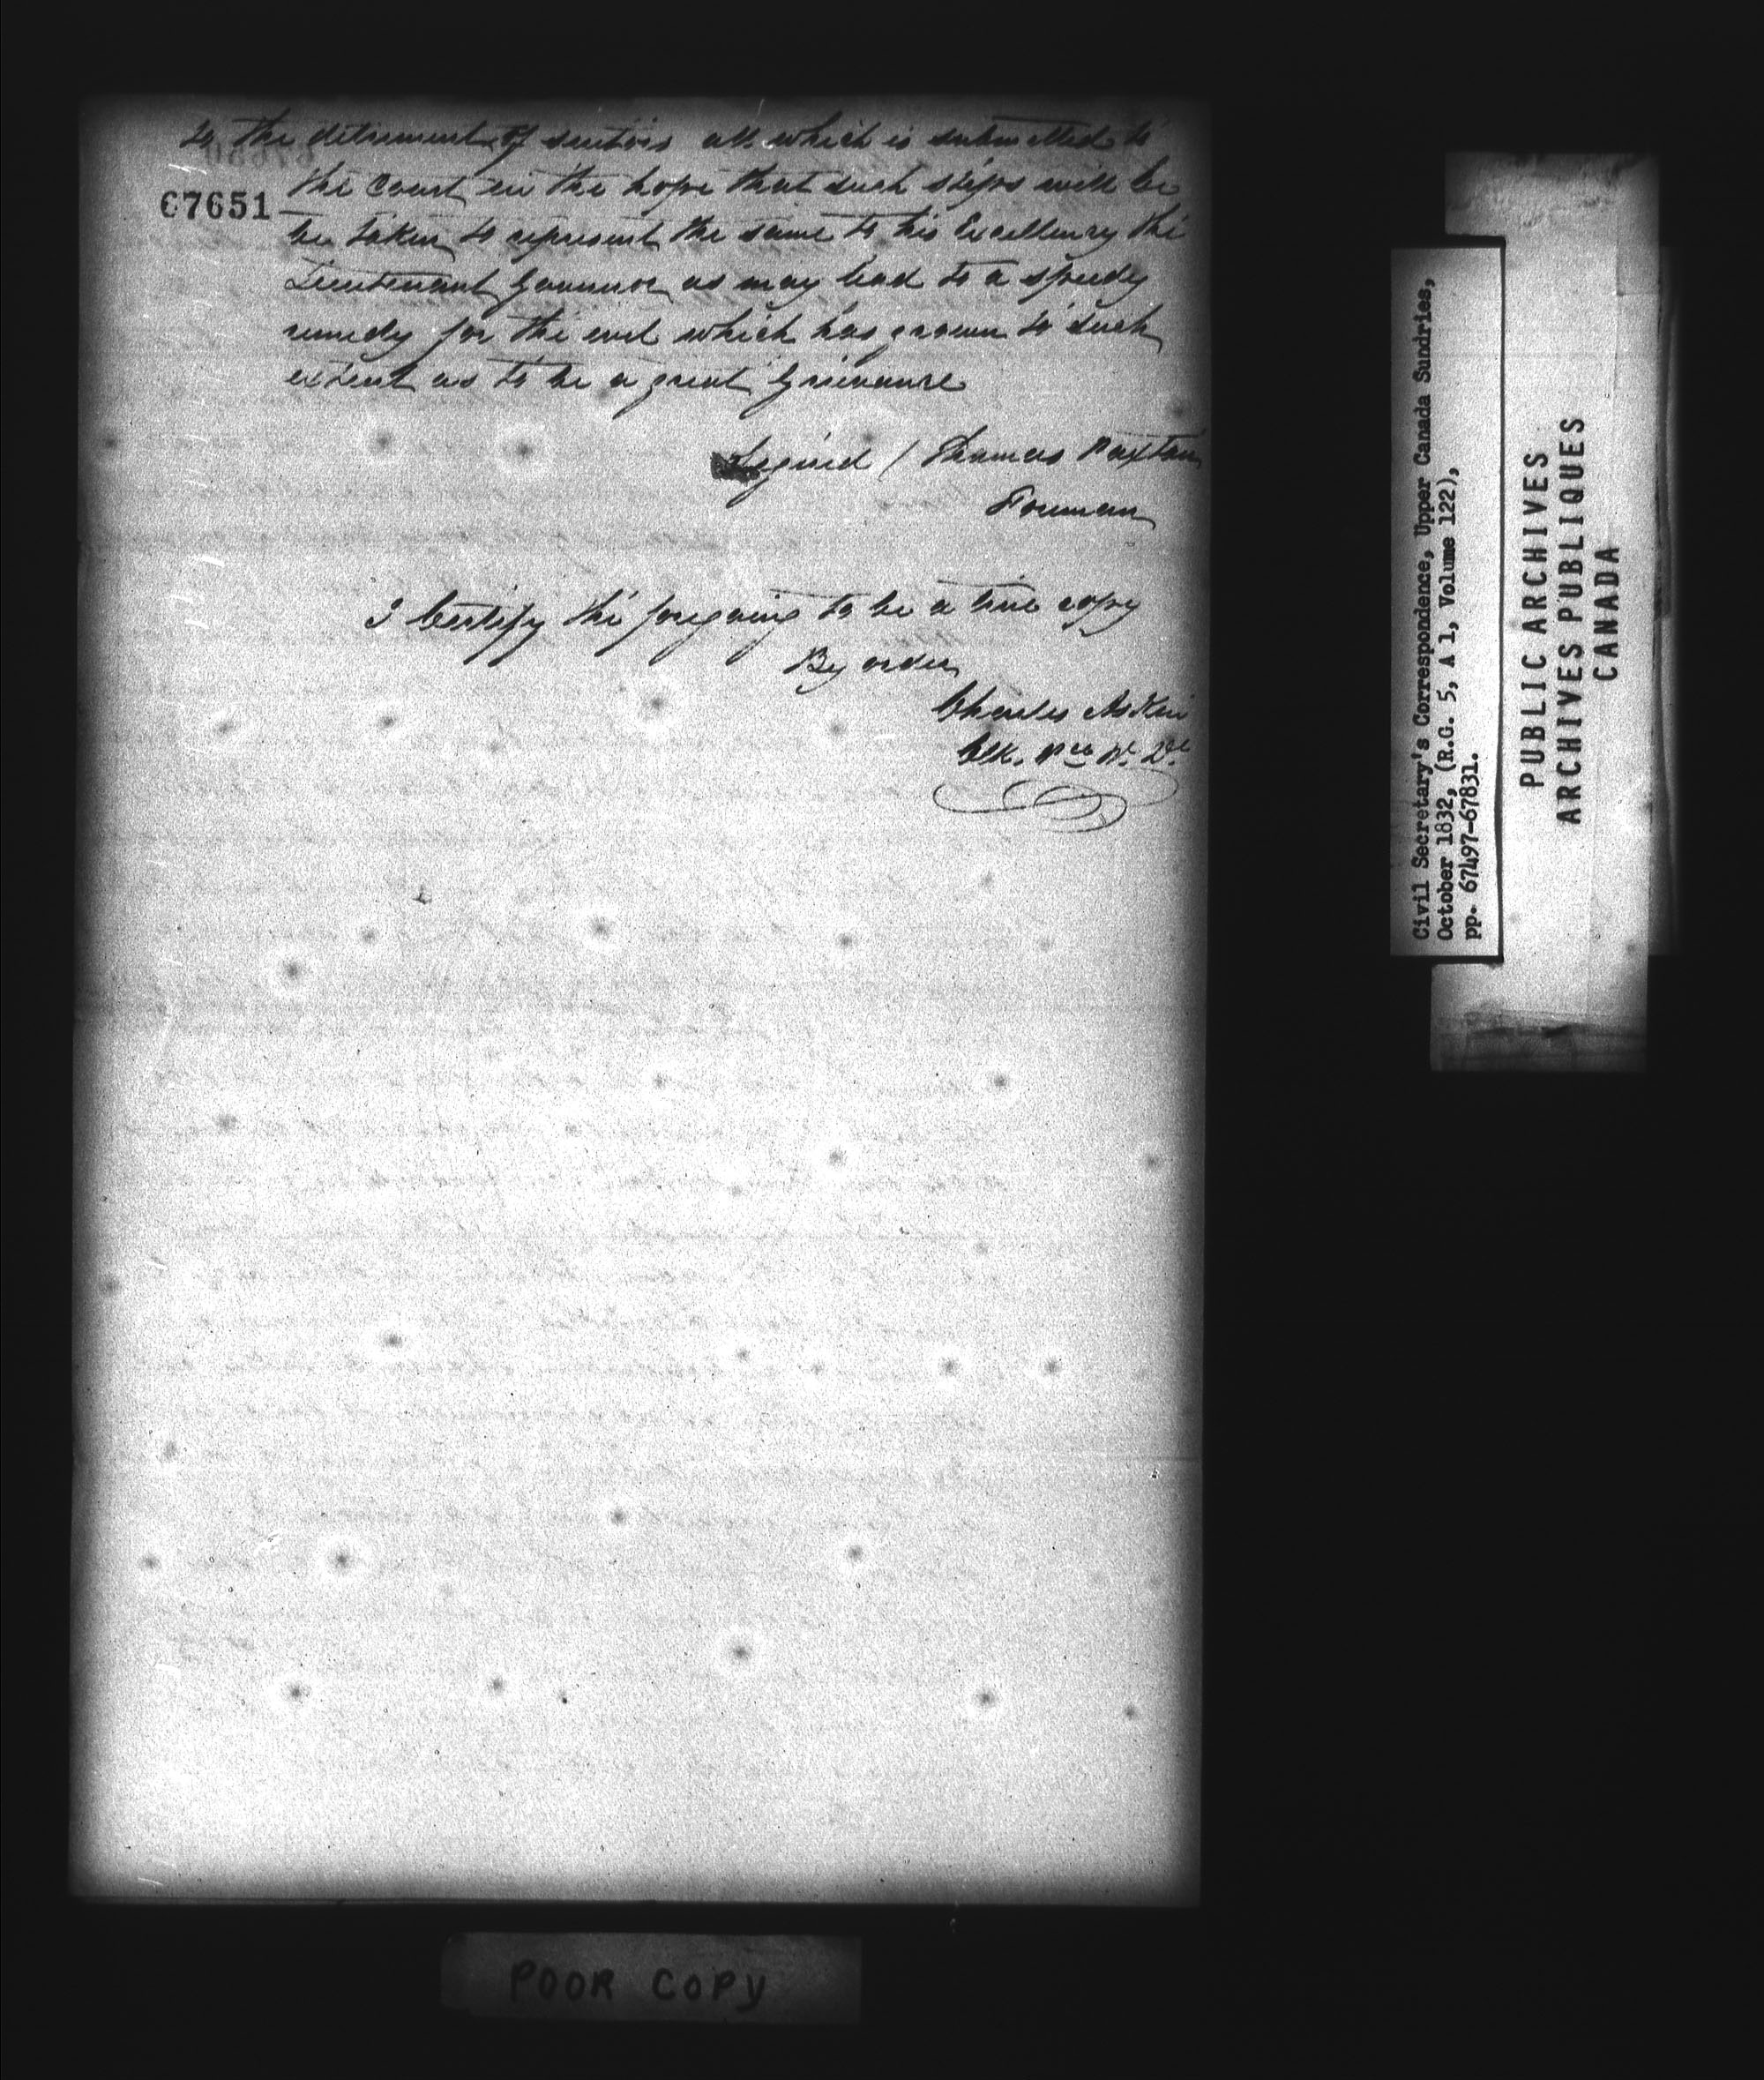 to the detriment of suitors all which is submitted to
67651
the Court in the hope that such steps will be
be taken to represent the same to his Excellency the
Lieutenant Governor as may lead to a speedy
remedy for the evil which has grown to such
extent as to be a great Grievance
Signed / Thomas Paxton
Foreman
I Certify the foregoing to be a true copy
By order
Charles Askin
Clk. Pce W. Dt
Civil Secretary's Correspondence, Upper Canada Sundries,
October 1832, (R.G. 5, A 1, Volume 122),
pp. 67497-67831.
PUBLIC ARCHIVES
ARCHIVES PUBLIQUES
CANADA
POOR COPY